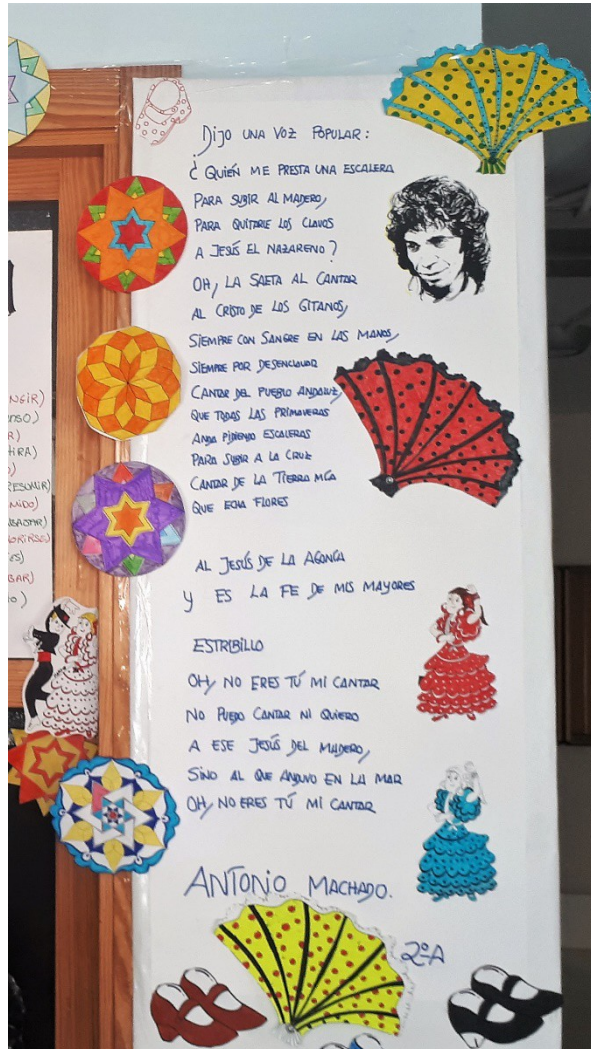 DIJO UNA VOZ POPULAR:
¿QUIÉN ME PRESTA UNA ESCALERA
PARA SUBIR AL MADERO,
PARA QUITARLE LOS CLAVOS
A JESÚS EL NAZARENO?
OH, LA SAETA AL CANTAR
AL CRISTO DE LOS GITANOS,
SIEMPRE CON SANGRE EN LAS MANOS,
SIEMPRE POR DESENCLAVAR
CANTAR DEL PUEBLO ANDALUZ,
QUE TODAS LAS PRIMAVERAS
ANDA PIDIENDO ESCALERAS
PARA SUBIR A LA CRUZ
CANTAR DE LA TIERRA MÍA
QUE ECHA FLORES
AL JESÚS DE LA AGONÍA
Y ES LA FE DE MIS MAYORES
ESTRIBILLO
OH, NO ERES TÚ MI CANTAR
NO PUEDO CANTAR NI QUIERO
A ESE JESÚS DEL MADERO,
SINO AL QUE ANDUVO EN LA MAR
OH, NO ERES TÚ MI CANTAR
ANTONIO MACHADO.
2ºA